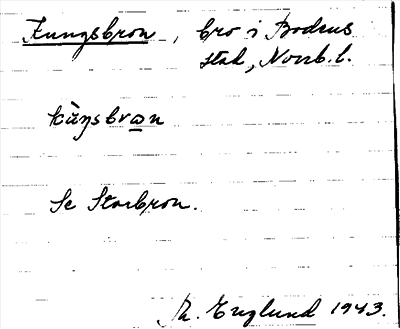 Kungsbron, bro i Bodens
stad, Norrb. l.
kùŋsbrɷn
Se Storbron.
Th. Englund 1943.